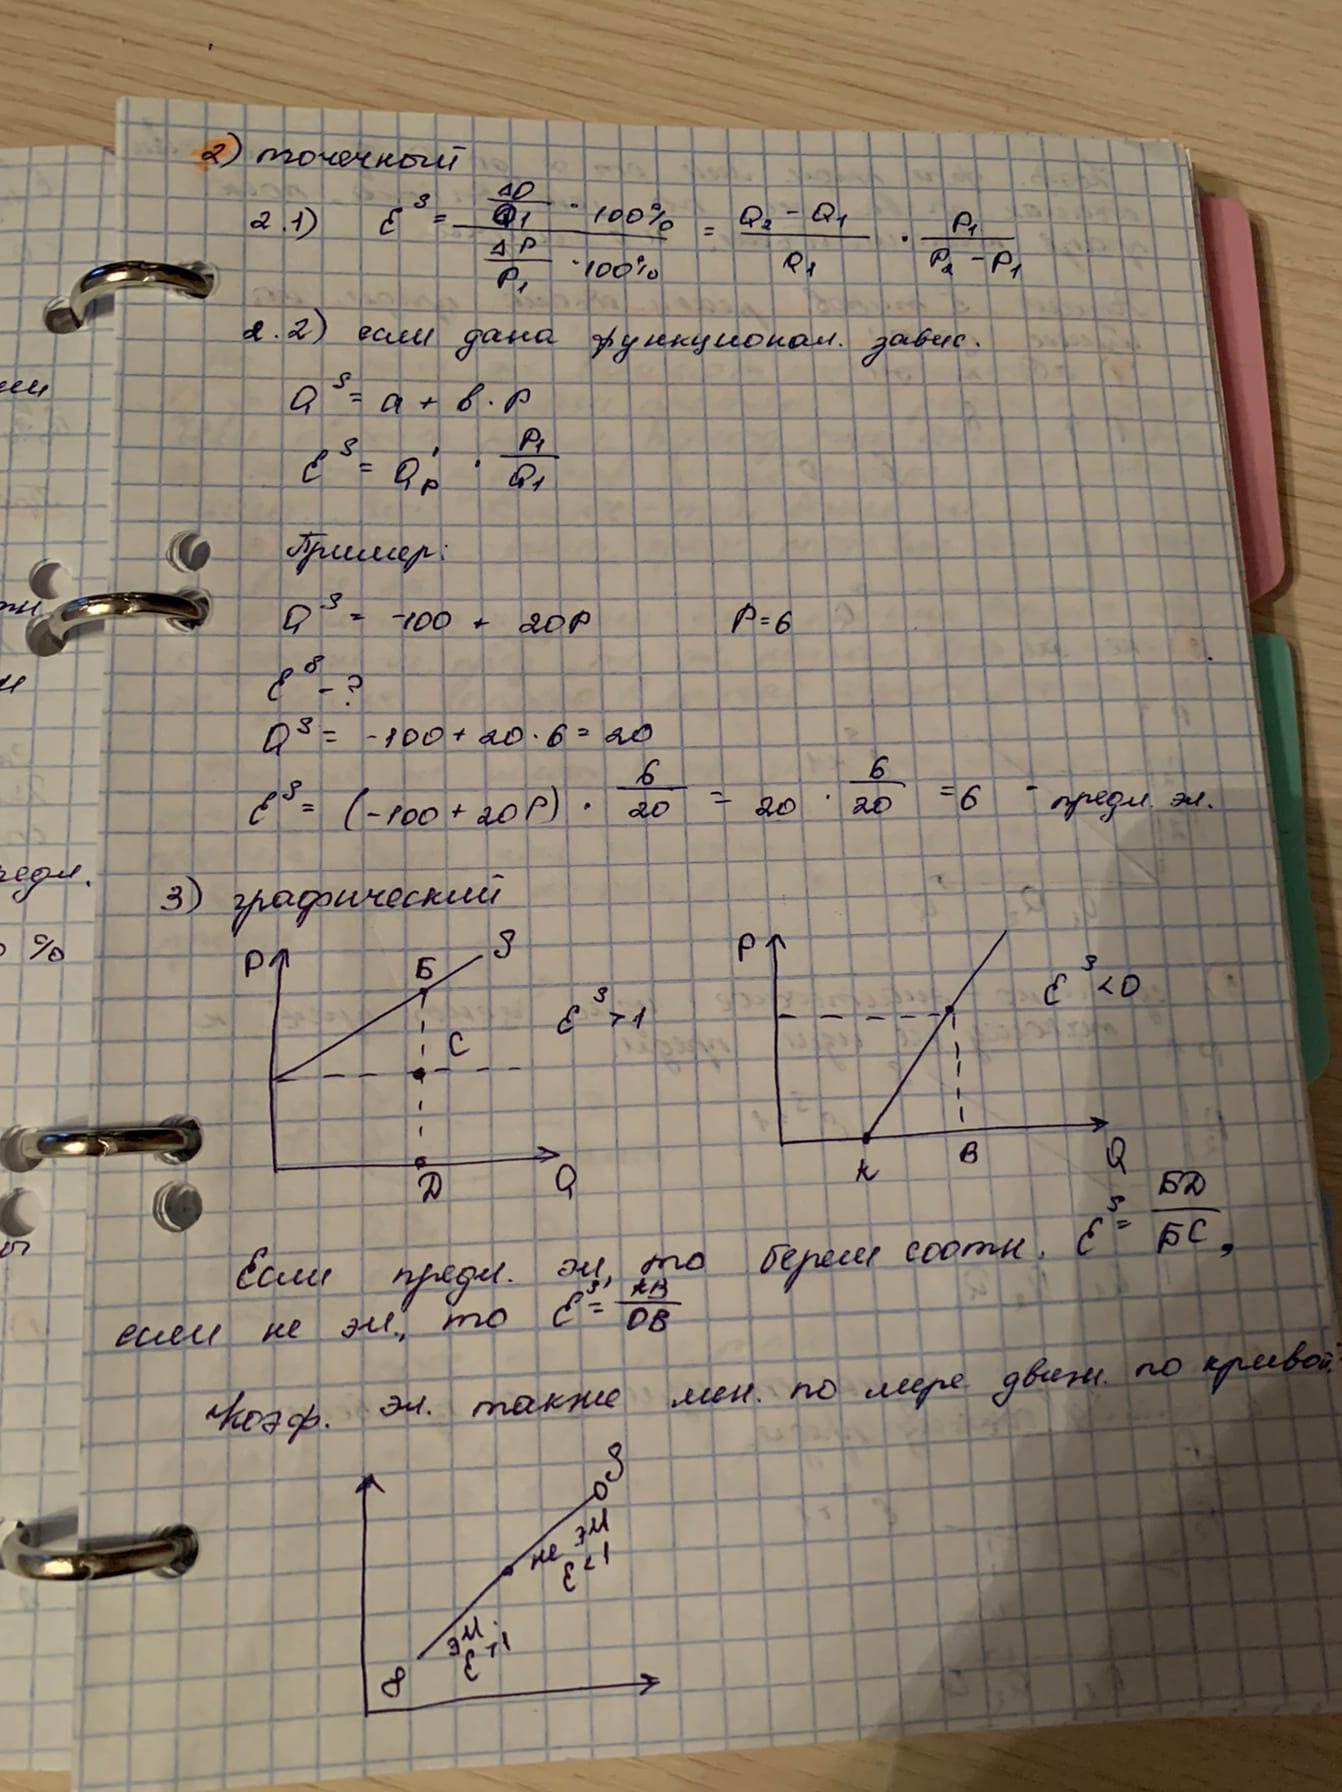 2) точечный
2.1) E^S = (ΔQ/Q1 · 100%)/(ΔP/P1 · 100%) = (Q2 - Q1)/Q1 · P1/(P2 - P1)
2.2) если дана функционал. завис.
Q^S = a + b · P
E^S = Q'p · P1/Q1
Пример:
Q^S = -100 + 20P P=6
E^S - ?
Q^S = -100 + 20 · 6 = 20
E^S = (-100 + 20P) · 6/20 = 20 · 6/20 = 6 - предл. эл.
3) графический
P Б S E^S > 1 C Д Q
P E^S < 0 K B Q
Если предл. эл, то берем соотн. E^S = БД/БС,
если не эл., то E^S = KB/OB
Коэф. эл. также мен. по мере движ. по кривой.
S
0
не эл
E<1
эл.
E>1
∞
ии
тн
и
редл.
%
ы